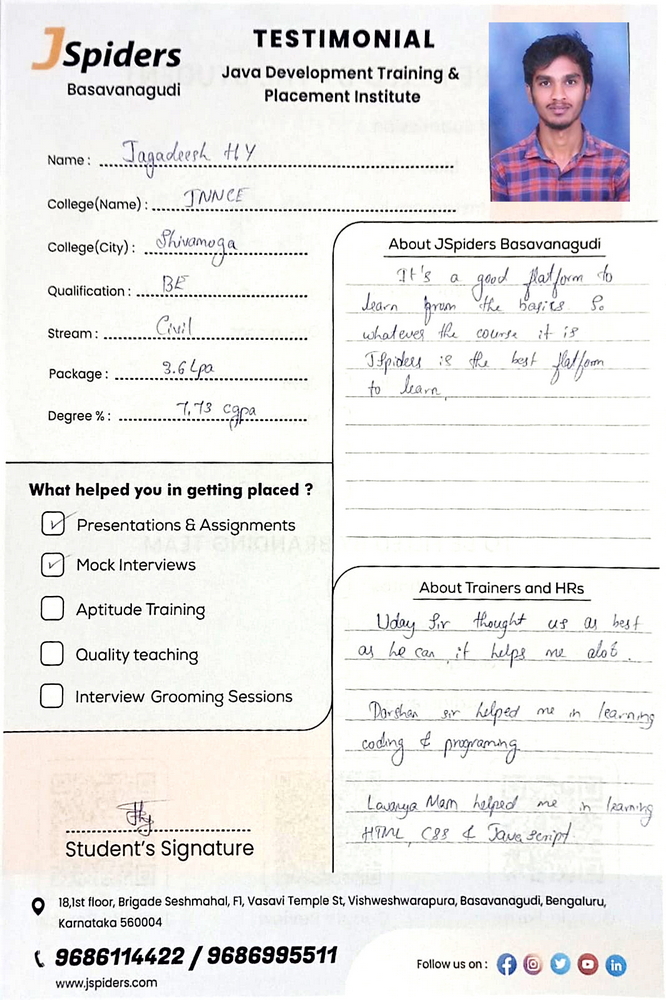 JSpiders
Basavanagudi
TESTIMONIAL
Java Development Training &
Placement Institute
Name : Jagadeesh H Y
College(Name) : JNNCE
College(City) : Shivamoga
Qualification : BE
Stream : Civil
Package : 3.6 Lpa
Degree % : 7.73 cgpa
What helped you in getting placed ?
Presentations & Assignments
Mock Interviews
Aptitude Training
Quality teaching
Interview Grooming Sessions
Student's Signature
About JSpiders Basavanagudi
It's a good flatform to
learn from the basics So
whatever the course it is
JSpiders is the best flatform
to learn.
About Trainers and HRs
Uday Sir thought us as best
as he can, it helps me alot.
Darshan sir helped me in learning
coding & programing
Lavanya Mam helped me in learning
HTML, CSS & Java script
18,1st floor, Brigade Seshmahal, F1, Vasavi Temple St, Vishweshwarapura, Basavanagudi, Bengaluru,
Karnataka 560004
9686114422 / 9686995511
www.jspiders.com
Follow us on :